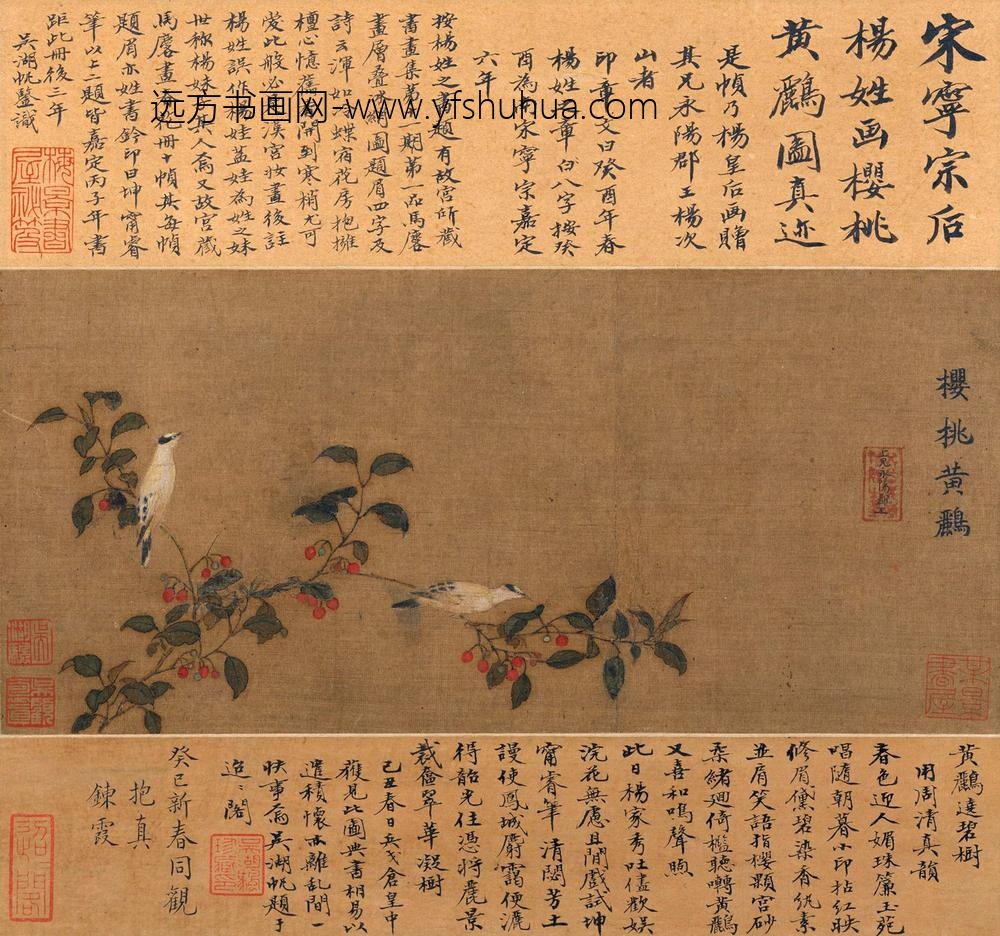 宋寧宗后
楊姓画櫻桃
黃鸝圖真迹
是幀乃楊皇后画贈
其兄永陽郡王楊次
山者
印章文曰癸酉年春
楊姓之章白八字按癸
酉為宋寧宗嘉定
六年
按楊姓之書題有故宮所藏
書畫集第一期第一品馬麐
畫層疊冰綃圖題眉四字及
詩云渾如冷蝶宿花房抱擁
檀心憶舊香開到寒梢尤可
愛此般必是漢宮妝畫後註
楊姓誤作楊娃蓋娃為姓之妹
世稱楊妹其人焉又故宮藏
馬麐畫花冊十幀其每幀
題眉亦姓書鈐印曰坤甯睿
筆以上二題皆嘉定丙子年書
距此冊後三年
吳湖帆鑒識
梅景書屋秘笈
远方书画网-www.yfshuhua.com
櫻桃黃鸝
上兄永陽郡王
梅景書屋
黃鸝遶碧樹
用周清真韻
春色迎人媚珠簾玉苑
唱隨朝暮小印拈紅映
修眉黛碧染香紈素
並肩笑語指櫻顆宮砂
柔緒迴倚檻聽囀黃鸝
又喜和鳴聲煦
此日楊家秀吐儘歡娛
浣花無慮且閒戲試坤
甯睿筆清閟芳土
謾使鳳城麝靄便灑
得韶光住憑將麗景
裁奩翠華凝樹
己丑春日兵戈倉皇中
獲見此圖典書相易以
遣積懷亦離亂間一
快事焉吳湖帆題于
迢迢閣
癸巳新春同觀
抱真
鍊霞
迢迢閣